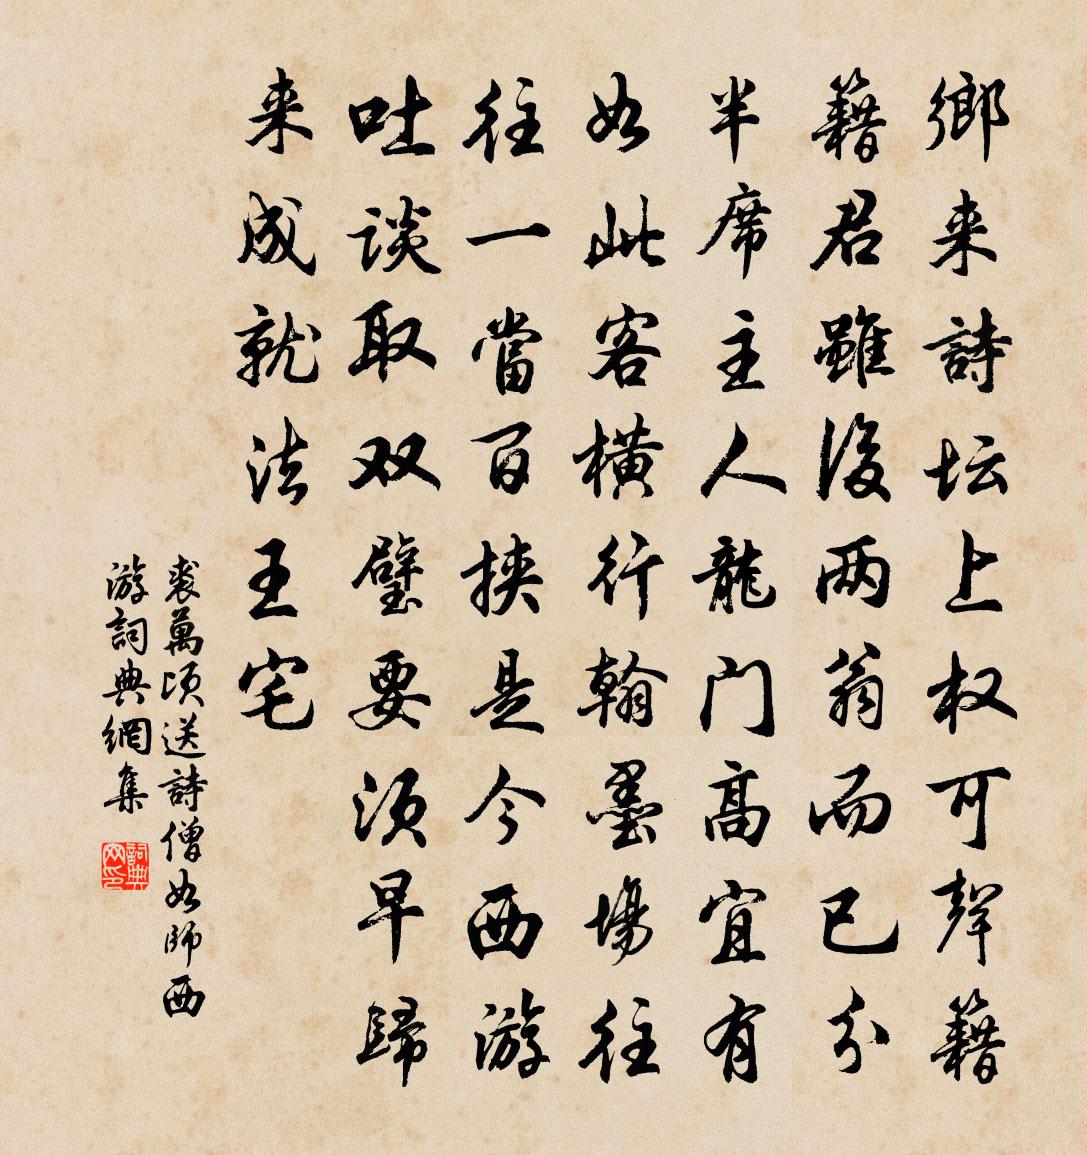 鄉来詩坛上权可聲籍
籍君雖後两翁而已分
半席主人龍门高宜有
如此客橫行翰墨場往
往一當百挟是今西游
吐談取双璧要須早歸
来成就法王宅
裘萬頃送詩僧如師西
游詞典網集
詞典网印